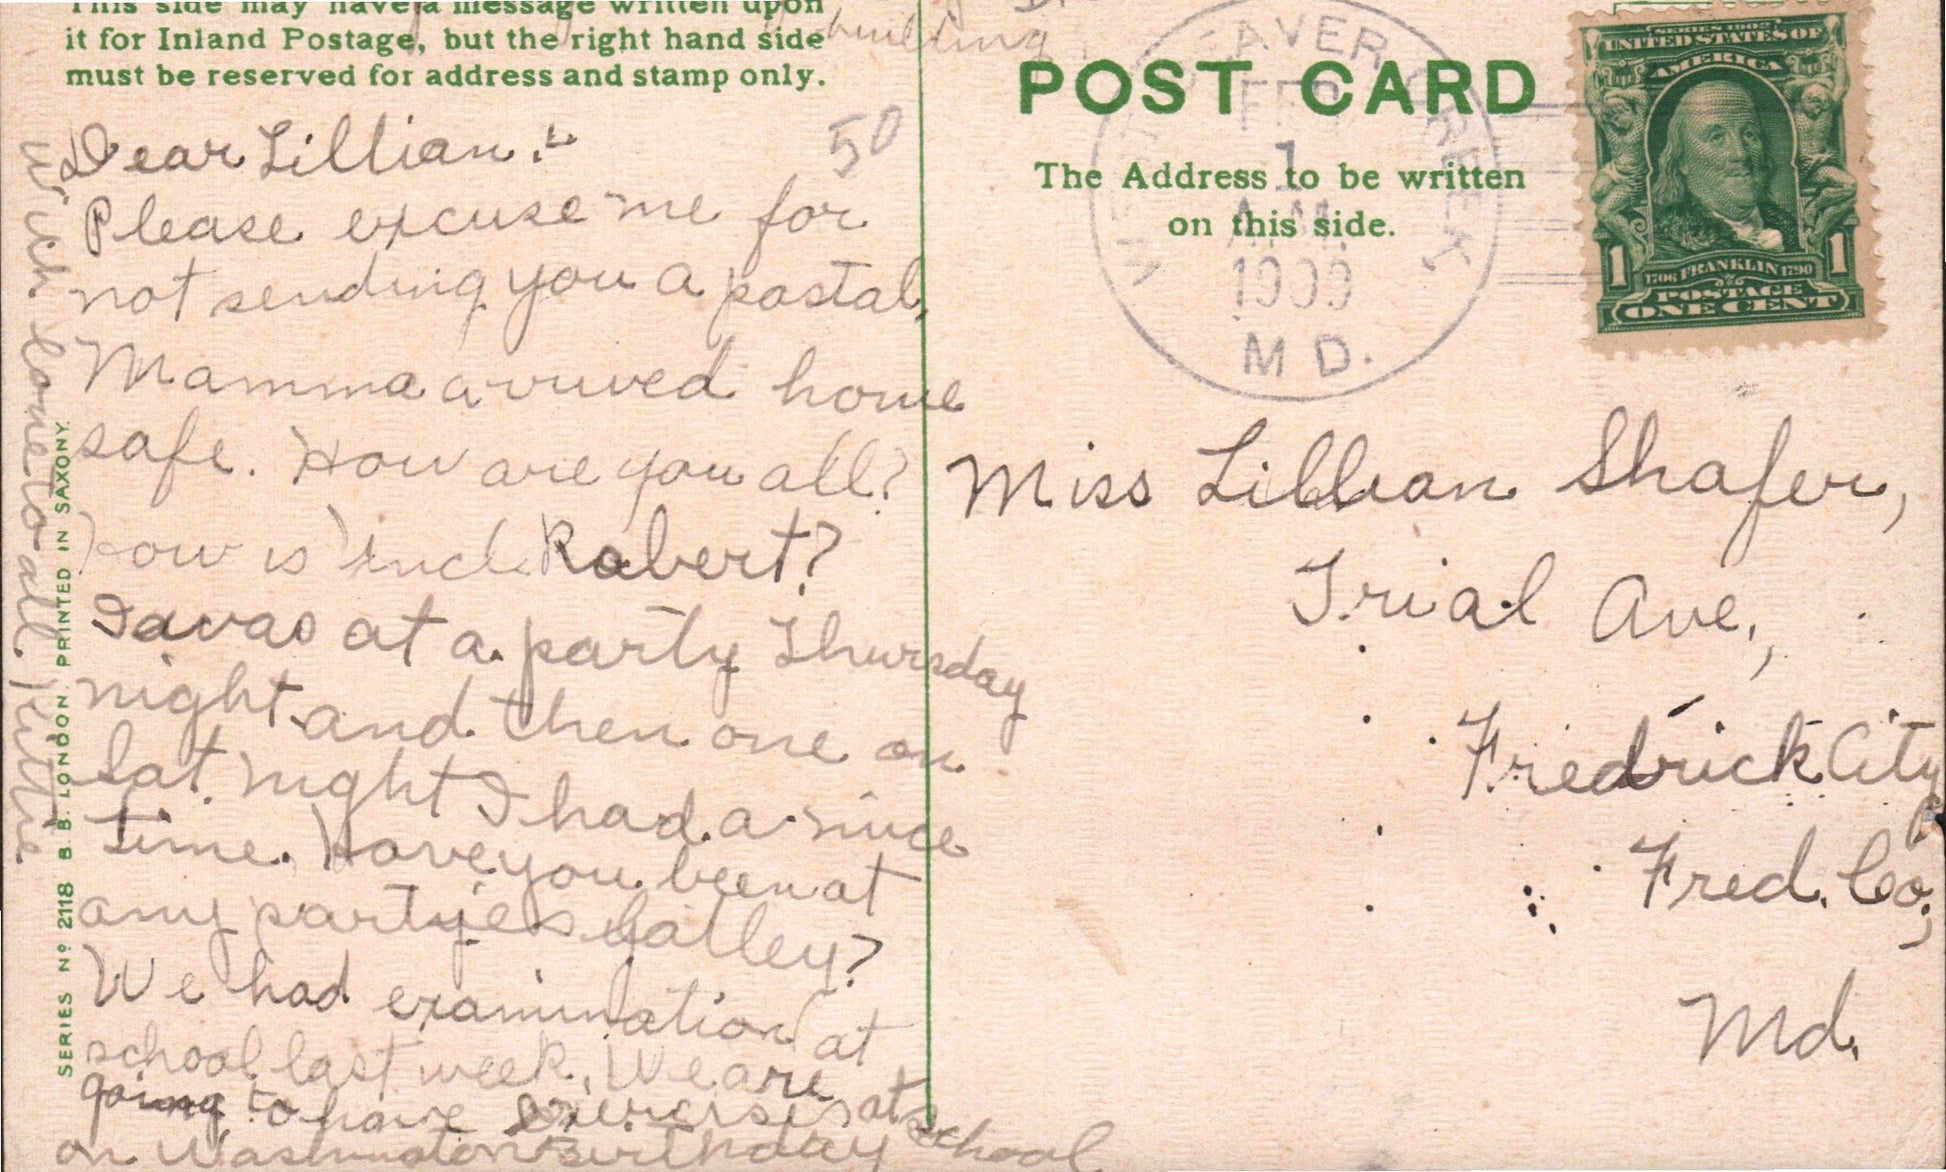 This side may have a message written upon
it for Inland Postage, but the right hand side
must be reserved for address and stamp only.
building
50
Dear Lillian:-
Please excuse me for
not sending you a postal.
Mamma arrived home
safe. How are you all?
How is Uncle Robert?
I was at a party Thursday
night and then one on
Sat. night I had a nice
time. Have you been at
any partyes
We had examination at
school last week, We are
going to have exercises at school
on Washington Birthday
With love to all Kittie
SERIES Nº 2118 B B. LONDON PRINTED IN SAXONY.
POST CARD
The Address to be written
on this side.
BEAVER CREEK
FEB
1
A.M.
1909
MD.
SERIES 1902
UNITED STATES OF
AMERICA
1706 FRANKLIN 1790
POSTAGE
1 ONE CENT 1
Miss Lillian Shafer,
Trial Ave,
Fredrick City
Fred. Co,
Md.